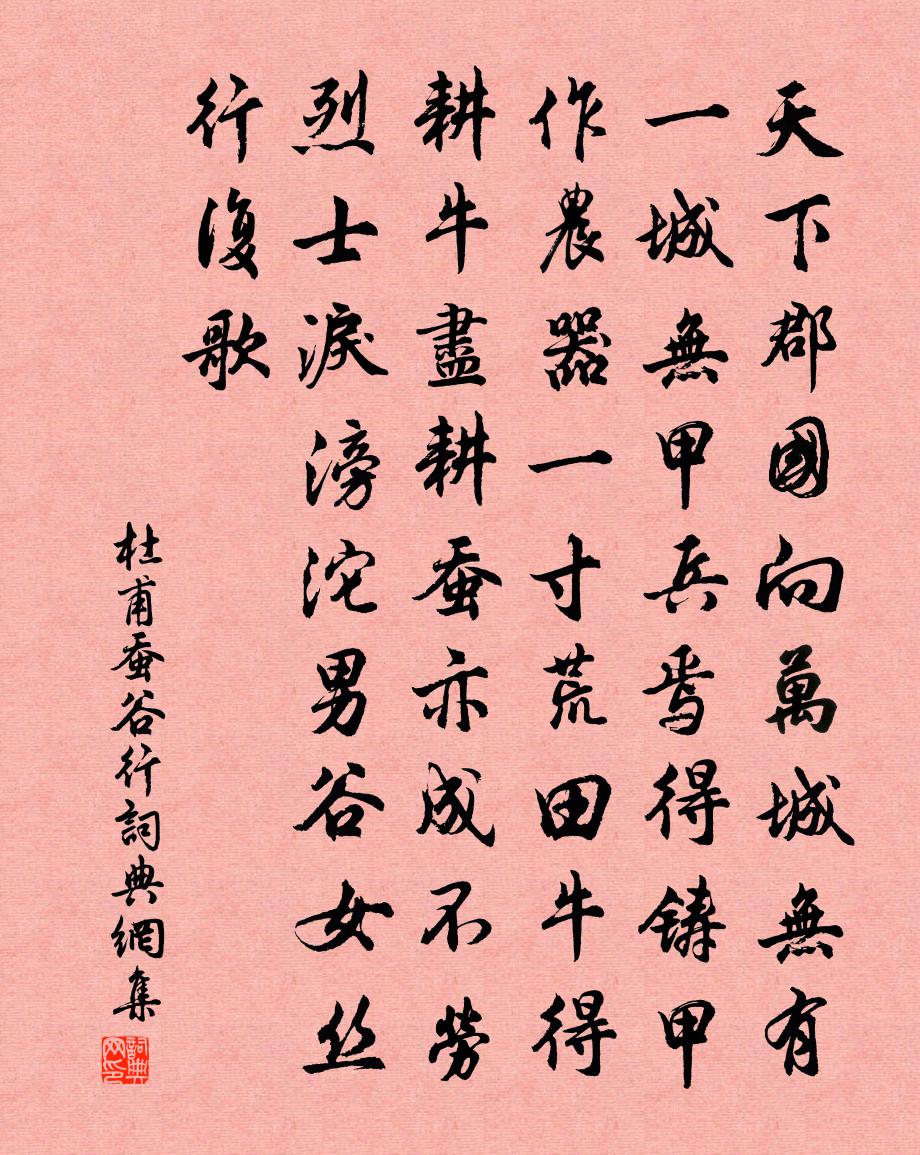 天下郡國向萬城無有
一城無甲兵焉得鑄甲
作農器一寸荒田牛得
耕牛盡耕蚕亦成不勞
烈士淚滂沱男谷女丝
行復歌
杜甫蚕谷行詞典網集
詞典网印